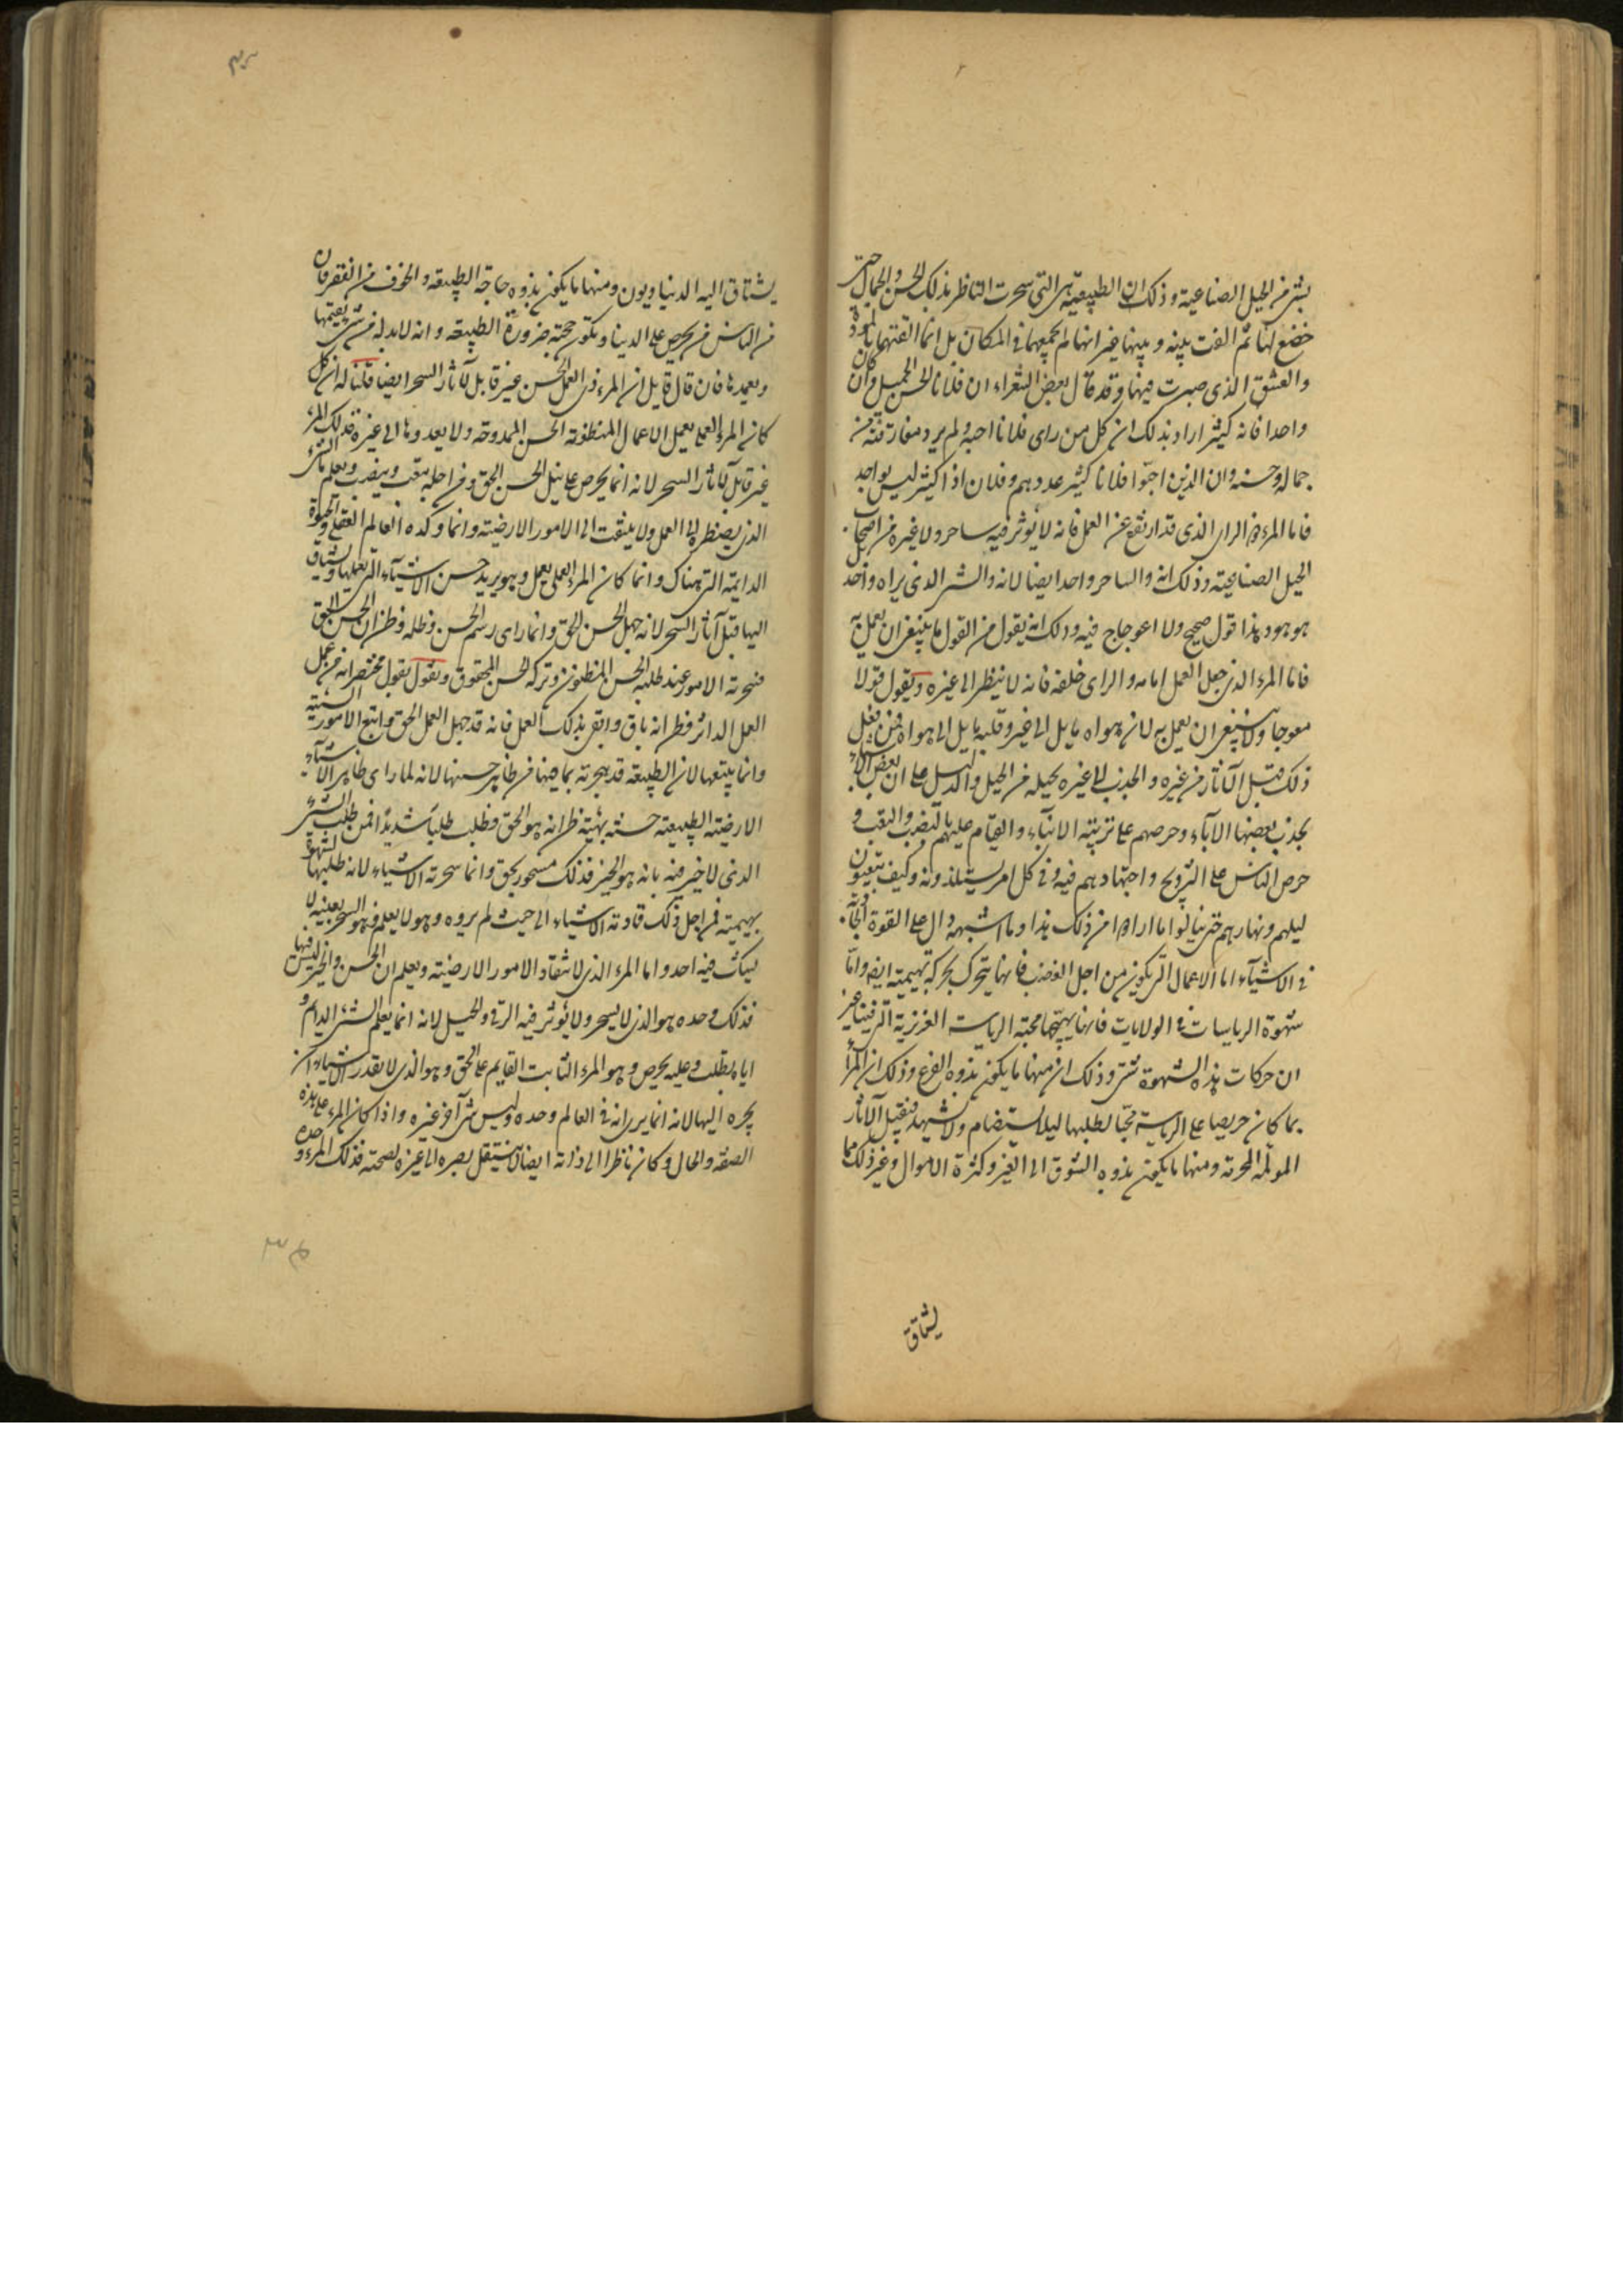 بشئ من الحيل الصناعية وذلك ان الطبيعة هى التى سحرت الناظر بذلك الحسن والجمال حتى
خضع لها ثم الفت بينه وبينها غير انها لم تجمعهما فى المكان بل انما الفتهما بالمودة
والعشق الذى صيرت فيهما وقد قال بعض الشعراء ان فلانا الحسن الجميل وان كان
واحدا فانه كثير اراد بذلك ان كل من راى فلانا احبه ولم يرد مفارقته من
جماله وحسنه وان الذين احبّوا فلانا كثير عددهم وفلان اذا كثير ليس بواحد
فاما المرء ذو الراى الذى قد ارتفع عن العمل فانه لا يؤثر فيه ساحر ولا غيره من اصحاب
الحيل الصناعية وذلك انه والساحر واحد ايضا لانه والشئ الذى يراه واحد بل
هو هو وهذا قول صحيح ولا اعوجاج فيه وذلك انه يقول من القول ما ينبغى ان يعمل به
فاما المرء الذى جعل العمل امامه والراى خلفه فانه لا ينظر الى غيره ويقول قولا
معوجا ولا ينبغى ان يعمل به لان هواه مايل الى غير وقلبه مايل الى هواه فمن فعل
ذلك قبل الآثار من غيره والجذب الى غيره بحيله من الحيل والدليل على ان بعض الاشياء
يجذب بعضها الآباء وحرصهم على تربية الابناء والقيام عليهم بالنصب والتعب و
حرص الناس على التزويج واجتهادهم فيه وفى كل امر يستلذونه وكيف يتعبون
ليلهم ونهارهم حتى ينالوا ما ارادوا من ذلك هذا وما اشبهه دال على القوة الجاذبة
فى الاشياء اما الاعمال التى يكون من اجل الغضب فانها يتحرك بحركة بهيمية ايضا واما
شهوة الرياسات والولايات فانها يهيجها محبة الرياسة الغريزية التى فينا غير
ان حركات هذه الشهوة شتى وذلك ان منها ما يكون بدوه الفزع وذلك ان المرء
بما كان حريصا على الرياسة محبا لطلبها ليلا يستضام ولا يستهد فيقبل الآثار
المولمة المحزنة ومنها ما يكون بدوه الشوق الى الغنى وكثرة الاموال وغير ذلك مما
يشتاق
يشتاق اليه الدنياويون ومنها ما يكون بدوه حاجة الطبيعة والخوف من الفقر فان
من الناس من يحرص على الدنيا ويكون حجته ضرورة الطبيعة وانه لابد له من شئ يقيمها
ويعمدها فان قال قايل ان المرء ذى العمل الحسن غير قابل لآثار السحر ايضا قلنا له ان كل
كان المرء العملى يعمل الاعمال المظنونة الحسن الممدوحة ولا يعدوها الى غيره فذلك المرء
غير قابل لآثار السحر لانه انما يحرص على نيل الحسن الحق ومن اجله يتعب وينصب ويعلم بالشئ
الذى يضطره الى العمل ولا يلتفت الى الامور الارضية وانما وكده العالم العقلى والحيوة
الدايمة التى هناك وانما كان المرء العملى يعمل وهو يريد حسن الاشياء التى يعملها ويشتاق
اليها قبل آثار السحر لانه جهل الحسن الحق وانما راى رسم الحسن وظله فظن انه الحسن الحق
فسحرته الامور عند طلبه الحسن المظنون وتركه الحسن المحقوق ونقول بقول مختصر انه من عمل
العمل الداثر وظن انه باق وابقى بذلك العمل فانه قد جهل العمل الحق واتبع الامور السيئة
وانما يتبعها لان الطبيعة قد سحرته بما فيها من ظاهر حسنها لانه لما راى ظاهر الاشياء
الارضية الطبيعية حسنة بهية ظن انه هو الحق فطلب طلبا شديدا فمن طلب الشئ
الذى لا خير فيه بانه هو الخير فذلك مسحور بحق وانما سحرته الاشياء لانه طلبها بشهوة
بهيمية فمن اجل ذلك قادته الاشياء الى حيث لم يرده وهو لا يعلم وهو السحر بعينه لا
يشك فيه احد واما المرء الذى لا ينقاد الامور الارضية ويعلم ان الحسن والخير ليس فيها
فذلك وحده هو الذى لا يسحر ولا يؤثر فيه الرقى والحيل لانه انما يعلم الشئ الدايم و
اياه يطلب وعليه يحرص وهو المرء الثابت القايم على الحق وهو الذى لا يقدر الاشياء ان
يجره اليها لانه انما يرى انه فى العالم وحده وليس شئ آخر غيره واذا كان المرء على هذه
الصفة والحال وكان ناظرا الى ذاته ايضا لا ينتقل بصره الى غيره لصحته فذلك المرء وحده